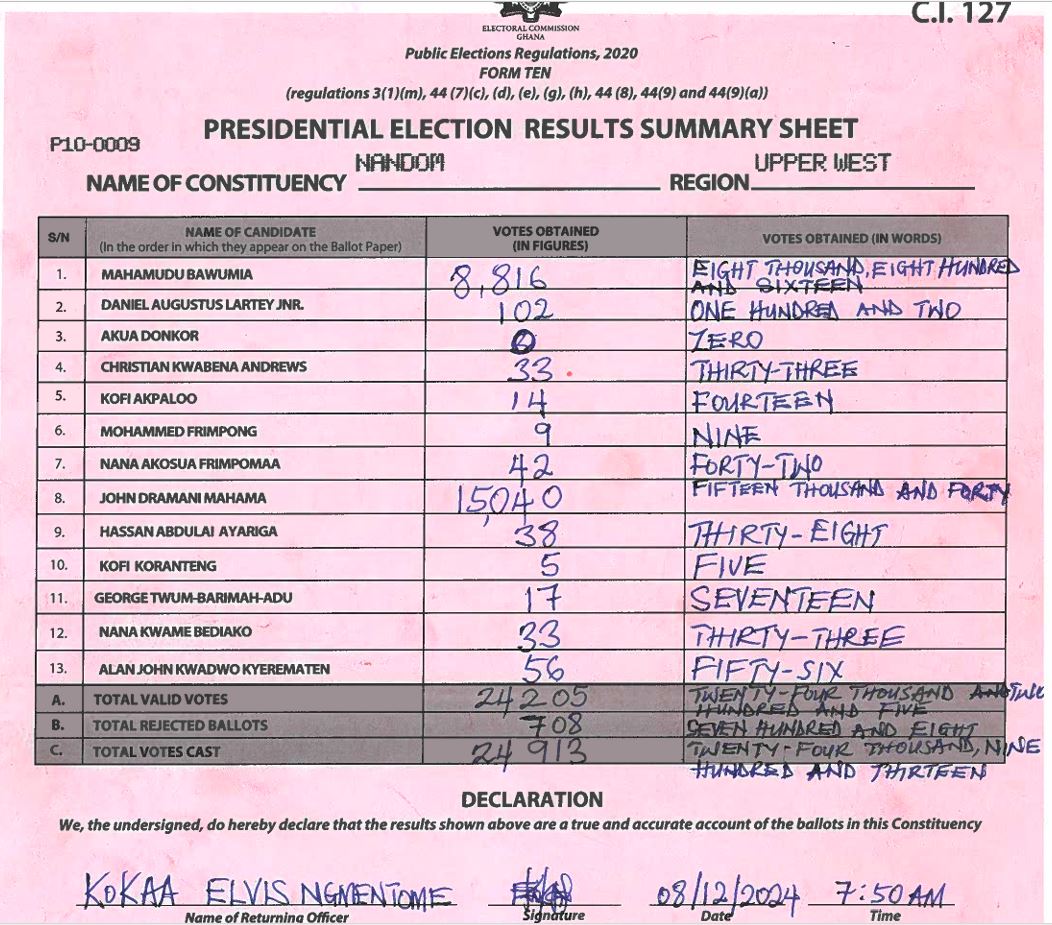 C.I. 127
ELECTORAL COMMISSION
GHANA
Public Elections Regulations, 2020
FORM TEN
(regulations 3(1)(m), 44 (7)(c), (d), (e), (g), (h), 44 (8), 44(9) and 44(9)(a))
PRESIDENTIAL ELECTION RESULTS SUMMARY SHEET
P10-0009
NAME OF CONSTITUENCY NANDOM REGION UPPER WEST
S/N NAME OF CANDIDATE (In the order in which they appear on the Ballot Paper) VOTES OBTAINED (IN FIGURES) VOTES OBTAINED (IN WORDS)
1. MAHAMUDU BAWUMIA 8,816 EIGHT THOUSAND, EIGHT HUNDRED AND SIXTEEN
2. DANIEL AUGUSTUS LARTEY JNR. 102 ONE HUNDRED AND TWO
3. AKUA DONKOR 0 ZERO
4. CHRISTIAN KWABENA ANDREWS 33 THIRTY-THREE
5. KOFI AKPALOO 14 FOURTEEN
6. MOHAMMED FRIMPONG 9 NINE
7. NANA AKOSUA FRIMPOMAA 42 FORTY-TWO
8. JOHN DRAMANI MAHAMA 15,040 FIFTEEN THOUSAND AND FORTY
9. HASSAN ABDULAI AYARIGA 38 THIRTY-EIGHT
10. KOFI KORANTENG 5 FIVE
11. GEORGE TWUM-BARIMAH-ADU 17 SEVENTEEN
12. NANA KWAME BEDIAKO 33 THIRTY-THREE
13. ALAN JOHN KWADWO KYEREMATEN 56 FIFTY-SIX
A. TOTAL VALID VOTES 24205 TWENTY-FOUR THOUSAND AND TWO HUNDRED AND FIVE
B. TOTAL REJECTED BALLOTS 708 SEVEN HUNDRED AND EIGHT
C. TOTAL VOTES CAST 24913 TWENTY-FOUR THOUSAND, NINE HUNDRED AND THIRTEEN
DECLARATION
We, the undersigned, do hereby declare that the results shown above are a true and accurate account of the ballots in this Constituency
KOKAA ELVIS NGMENTOME 08/12/2024 7:50 AM
Name of Returning Officer Signature Date Time